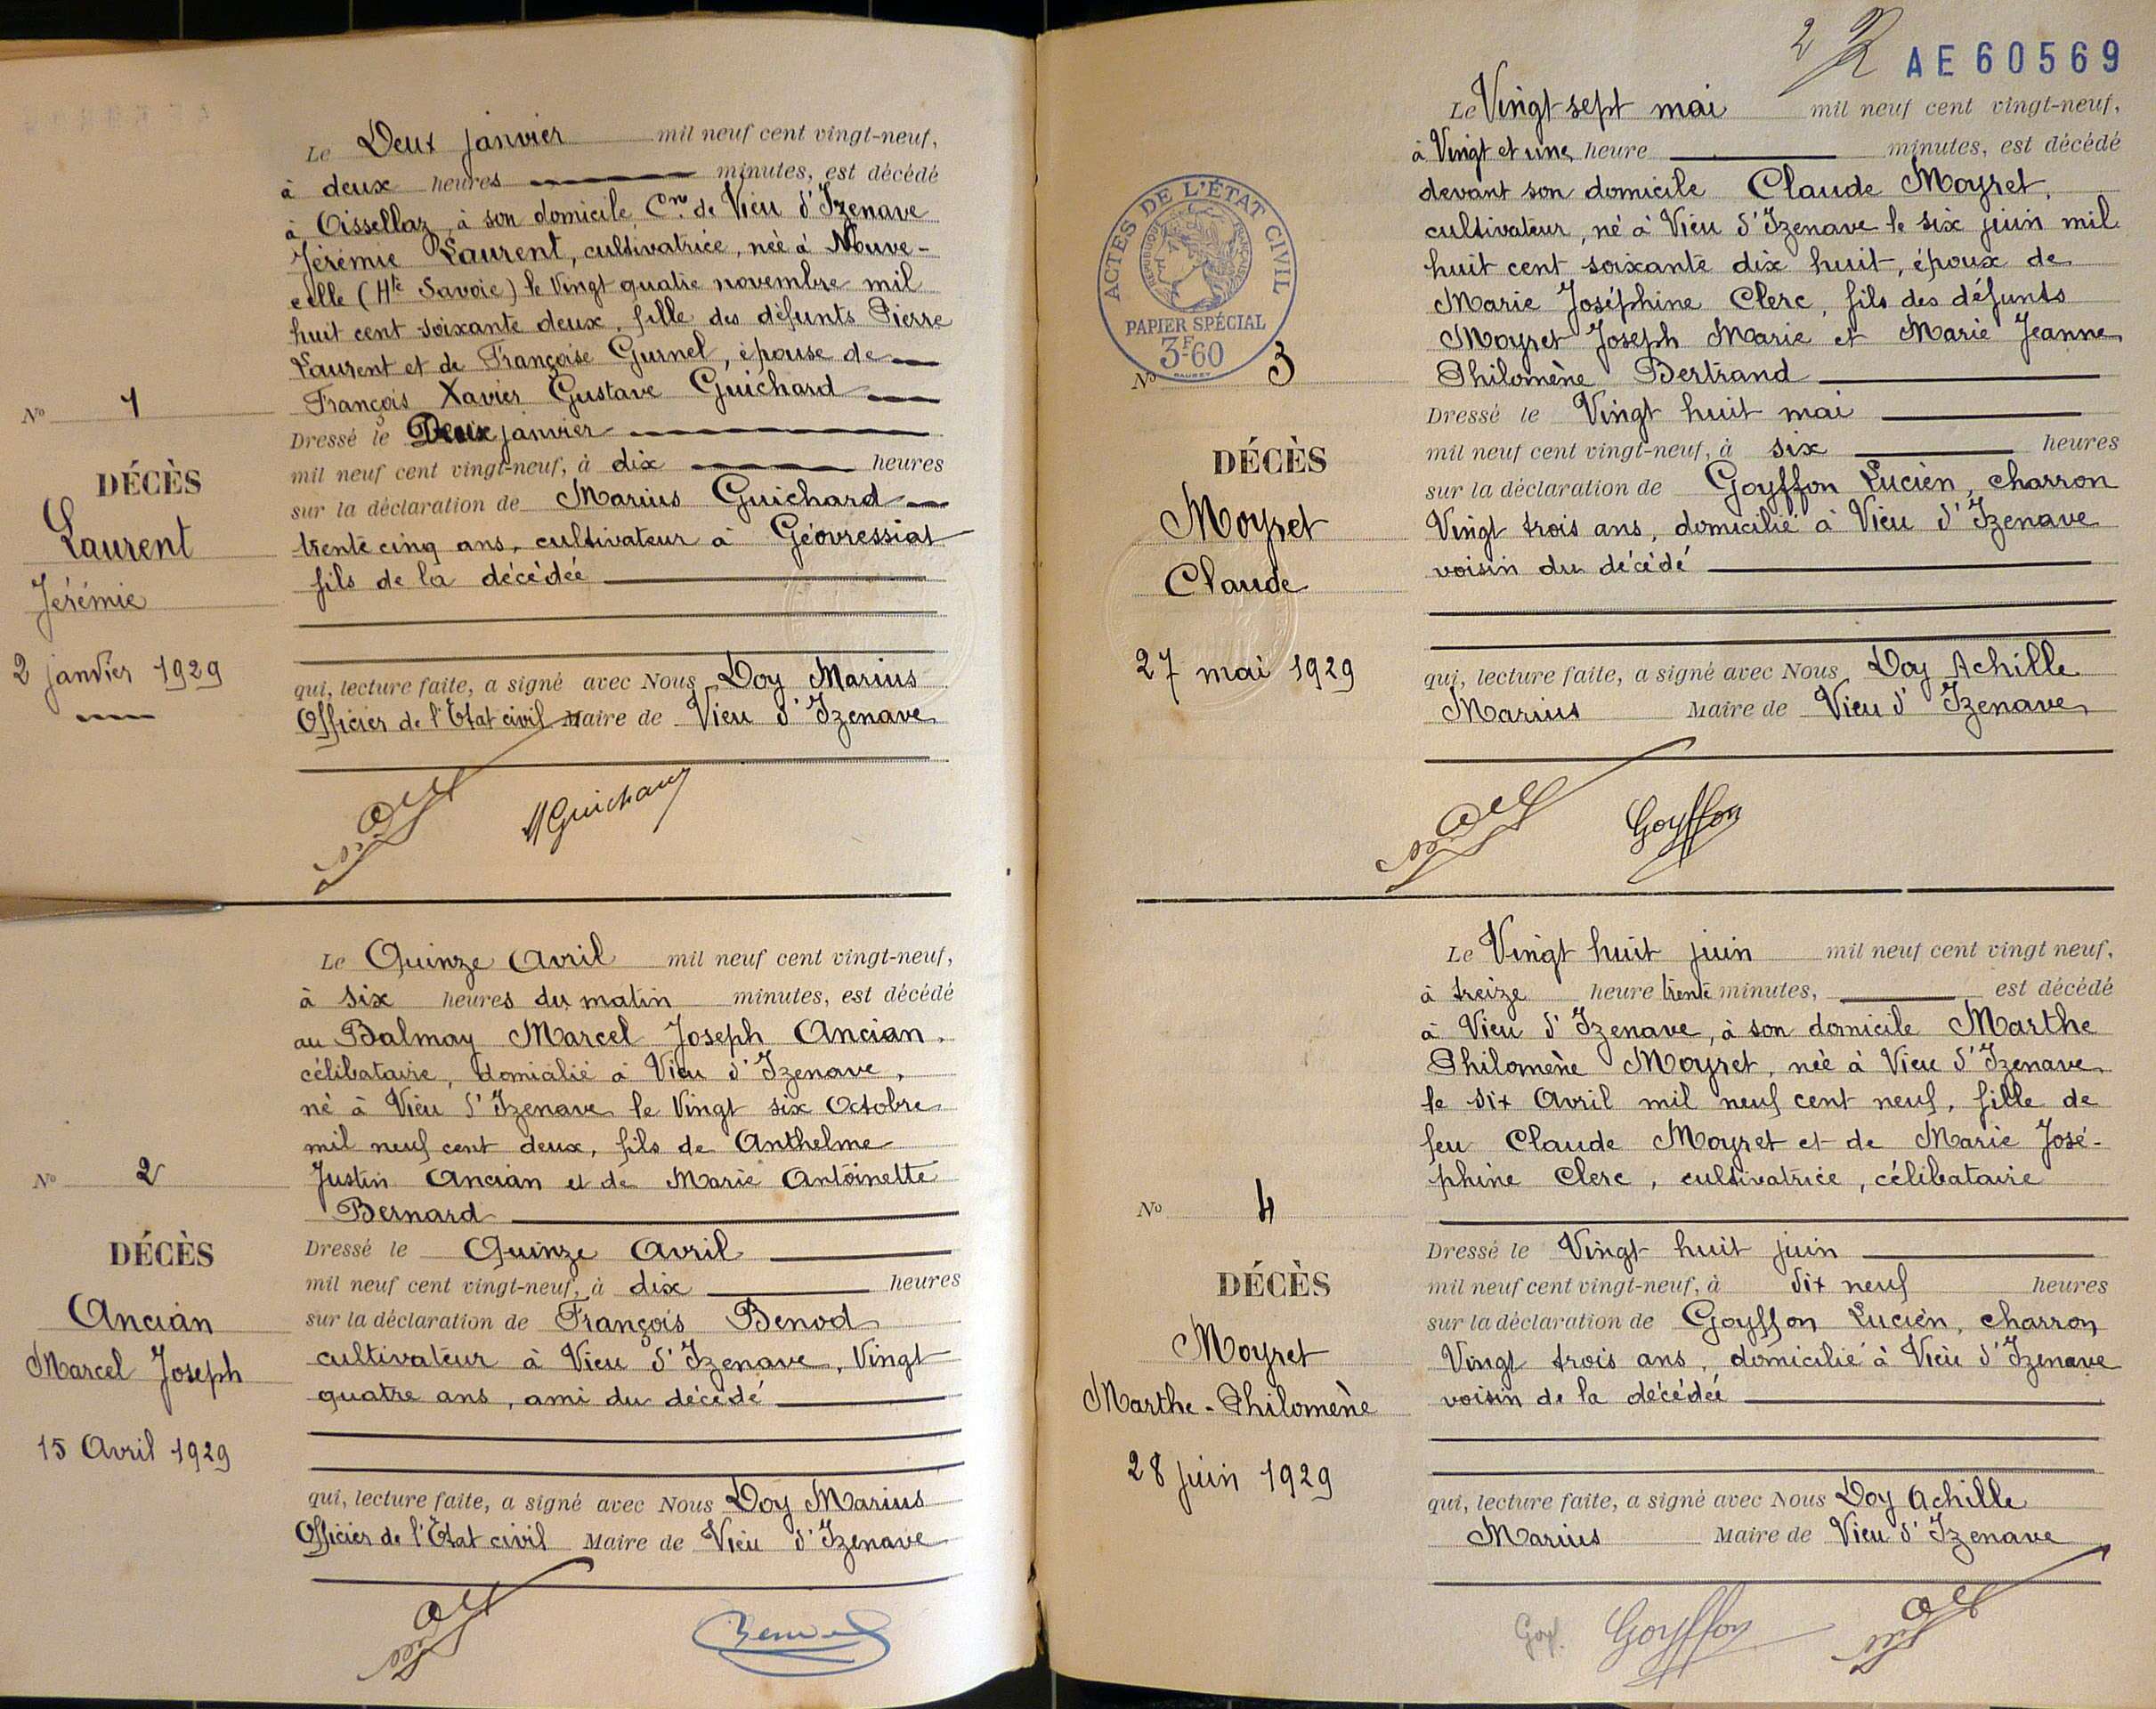 Le Deux janvier mil neuf cent vingt-neuf,
à deux heures minutes, est décédé
à Oissellaz, à son domicile Cne de Vieu d'Izenave
Jérémie Laurent, cultivatrice, née à Neuve-
celle (Hte Savoie) le Vingt quatre novembre mil
huit cent soixante deux, fille des défunts Pierre
Laurent et de Françoise Gurnel, épouse de
François Xavier Gustave Guichard
Dressé le Deux janvier
mil neuf cent vingt-neuf, à dix heures
sur la déclaration de Marius Guichard
trente cinq ans, cultivateur à Géovressiat
fils de la décédée
qui, lecture faite, a signé avec Nous Doy Marius
Officier de l'Etat civil Maire de Vieu d'Izenave
MGuichard
No 1
DÉCÈS
Laurent
Jérémie
2 janvier 1929
Le Quinze Avril mil neuf cent vingt-neuf,
à six heures du matin minutes, est décédé
au Balmay Marcel Joseph Ancian,
célibataire, domicilié à Vieu d'Izenave,
né à Vieu d'Izenave le Vingt six Octobre
mil neuf cent deux, fils de Anthelme
Justin Ancian et de Marie Antoinette
Bernard
Dressé le Quinze Avril
mil neuf cent vingt-neuf, à dix heures
sur la déclaration de François Benod
cultivateur à Vieu d'Izenave, Vingt
quatre ans, ami du décédé
qui, lecture faite, a signé avec Nous Doy Marius
Officier de l'Etat civil Maire de Vieu d'Izenave
No 2
DÉCÈS
Ancian
Marcel Joseph
15 Avril 1929
2
AE 60569
Le Vingt sept mai mil neuf cent vingt-neuf,
à Vingt et une heure minutes, est décédé
devant son domicile Claude Moyret,
cultivateur, né à Vieu d'Izenave le six juin mil
huit cent soixante dix huit, époux de
Marie Joséphine Clerc, fils des défunts
Moyret Joseph Marie et Marie Jeanne
Philomène Bertrand
Dressé le Vingt huit mai
mil neuf cent vingt-neuf, à six heures
sur la déclaration de Goyffon Lucien, charron
Vingt trois ans, domicilié à Vieu d'Izenave
voisin du décédé
qui, lecture faite, a signé avec Nous Doy Achille
Marius Maire de Vieu d'Izenave
Goyffon
ACTES DE L'ÉTAT CIVIL
RÉPUBLIQUE FRANÇAISE
PAPIER SPÉCIAL
3F60
No 3
DÉCÈS
Moyret
Claude
27 mai 1929
Le Vingt huit juin mil neuf cent vingt neuf,
à treize heure trente minutes, est décédé
à Vieu d'Izenave, à son domicile Marthe
Philomène Moyret, née à Vieu d'Izenave
le six Avril mil neuf cent neuf, fille de
feu Claude Moyret et de Marie José-
phine Clerc, cultivatrice, célibataire
Dressé le Vingt huit juin
mil neuf cent vingt-neuf, à dix neuf heures
sur la déclaration de Goyffon Lucien, charron
Vingt trois ans, domicilié à Vieu d'Izenave
voisin de la décédée
qui, lecture faite, a signé avec Nous Doy Achille
Marius Maire de Vieu d'Izenave
Goyf. Goyffon
No 4
DÉCÈS
Moyret
Marthe-Philomène
28 juin 1929